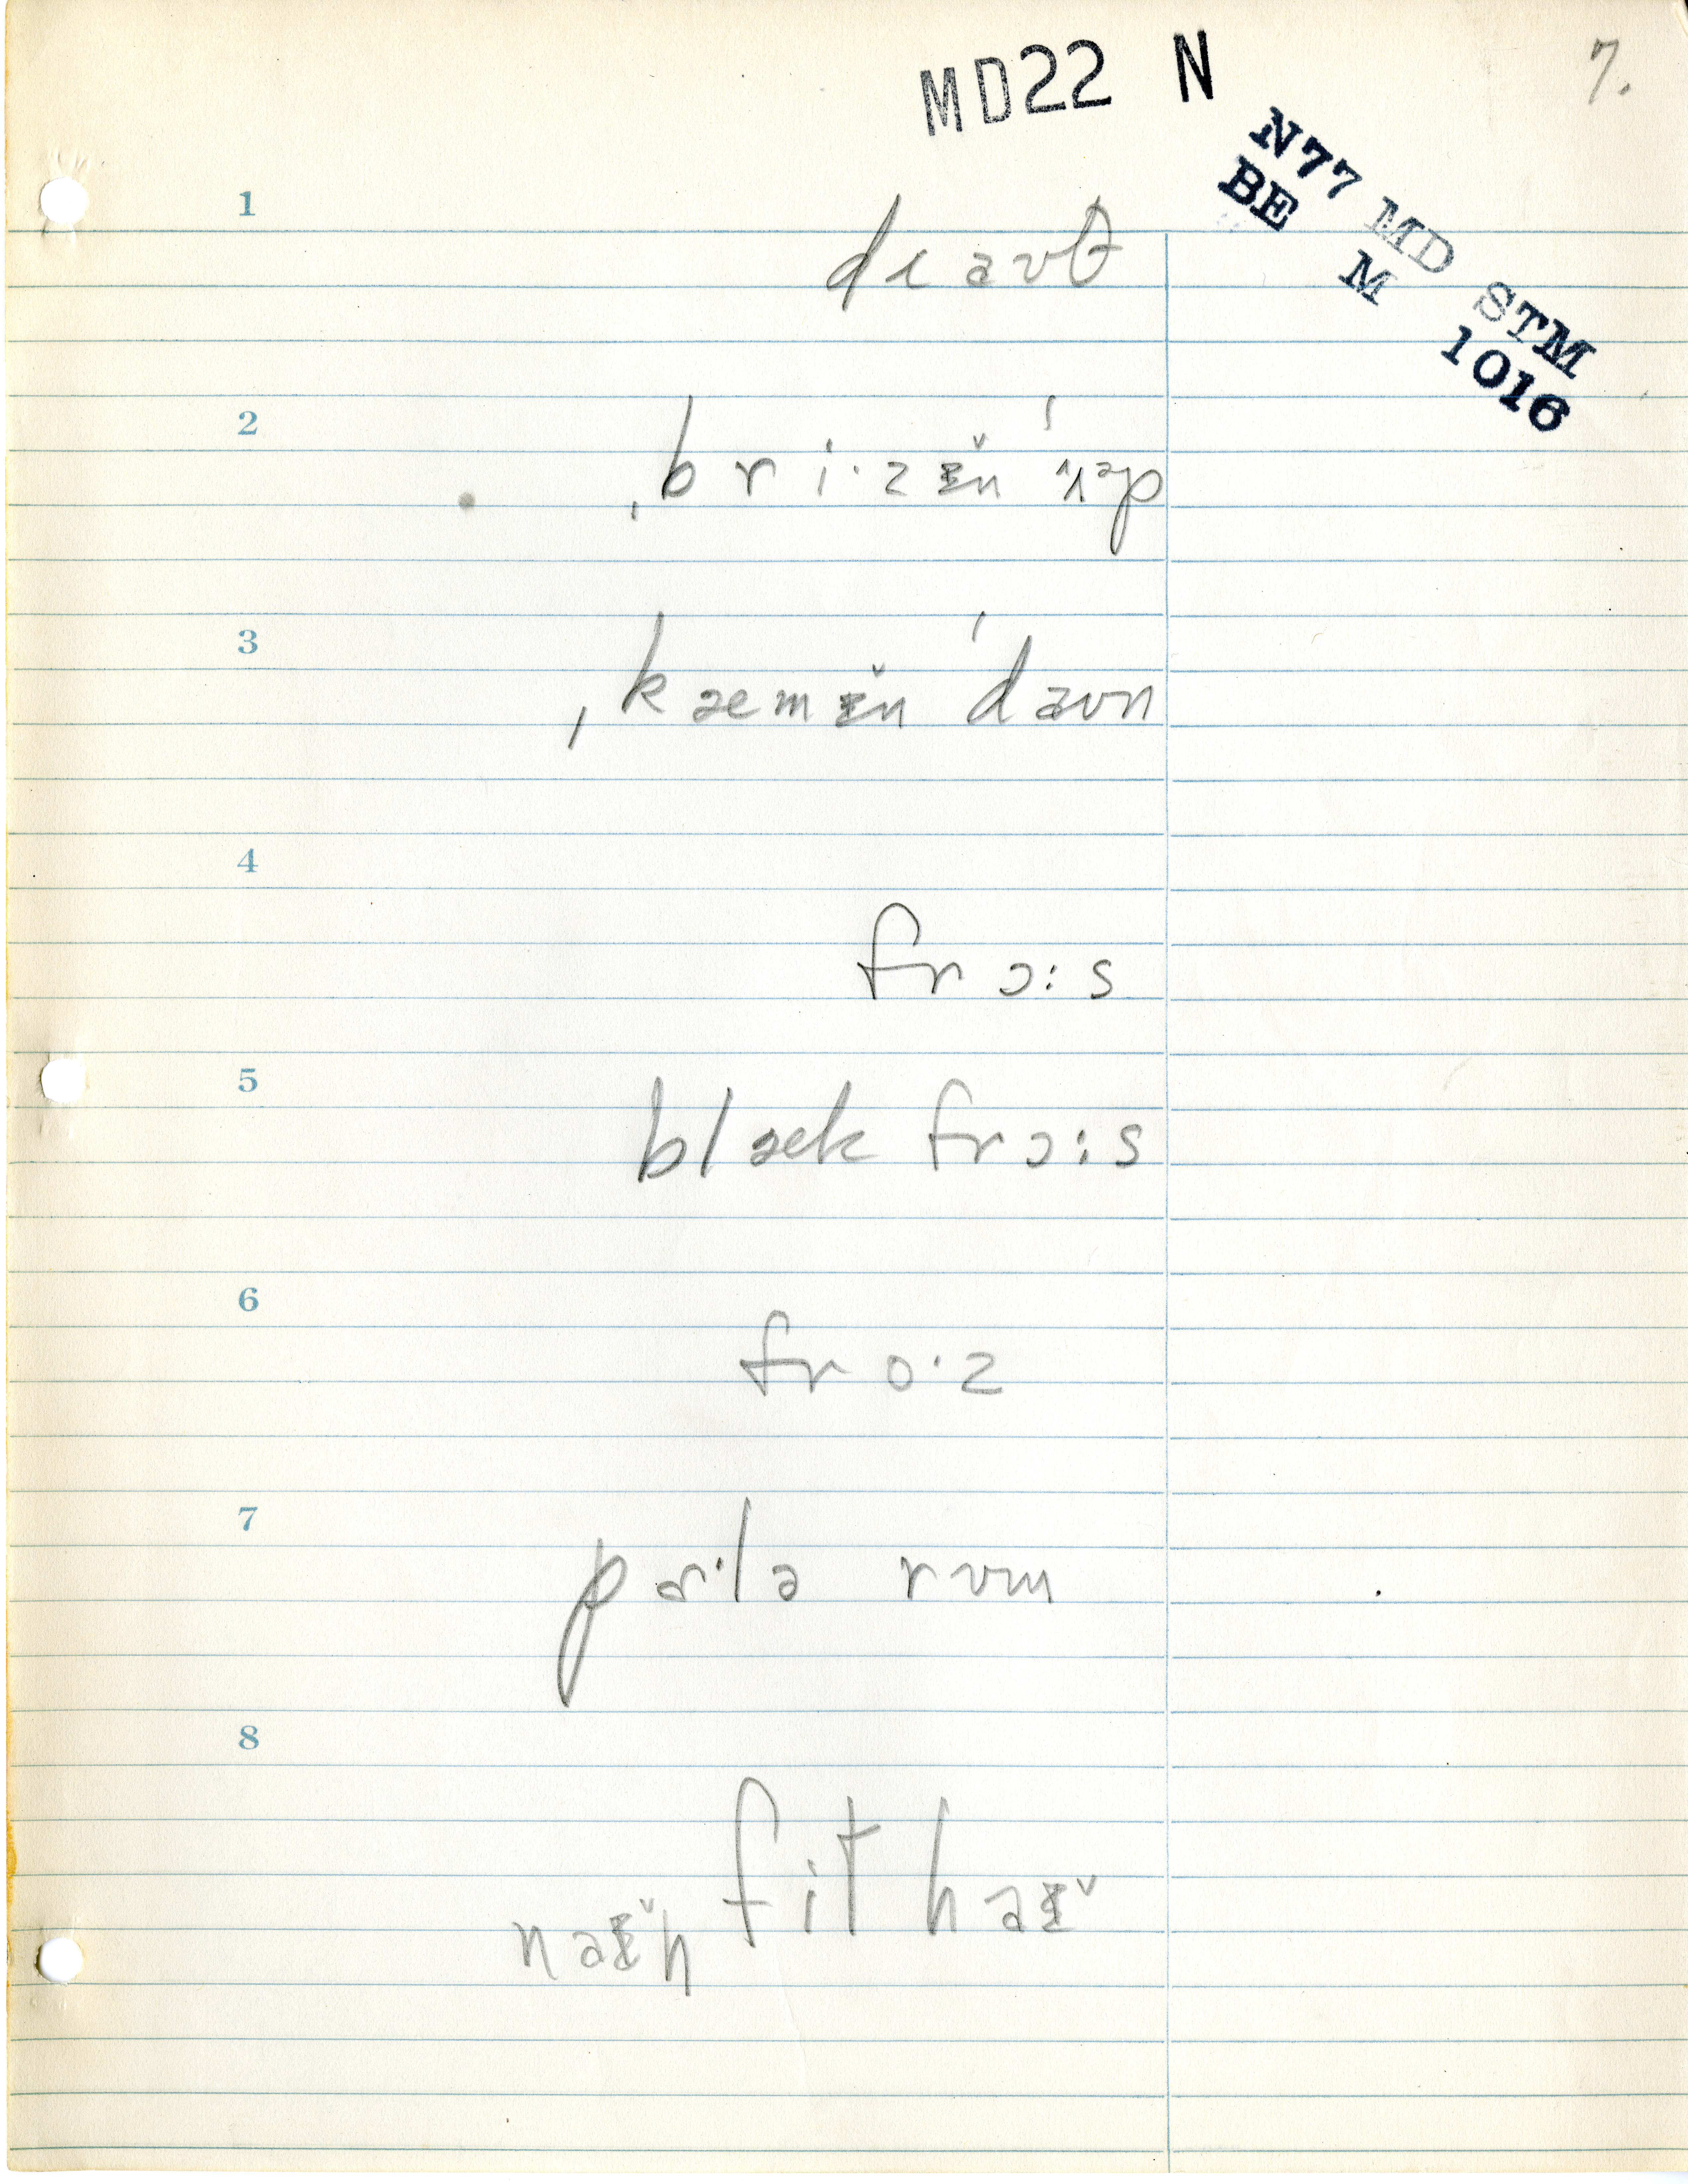 MD22 N
7.
N77 MD STM
BE M 1016
1
draʊt
2
ˌbriˑzɪ̆n ˈʌp
3
ˌkæmɪ̆n ˈdaʊn
4
frɔ:s
5
blæk frɔ:s
6
froˑz
7
pɑˑlə rʊm
8
fɪt haɪ̆
naɪ̆n